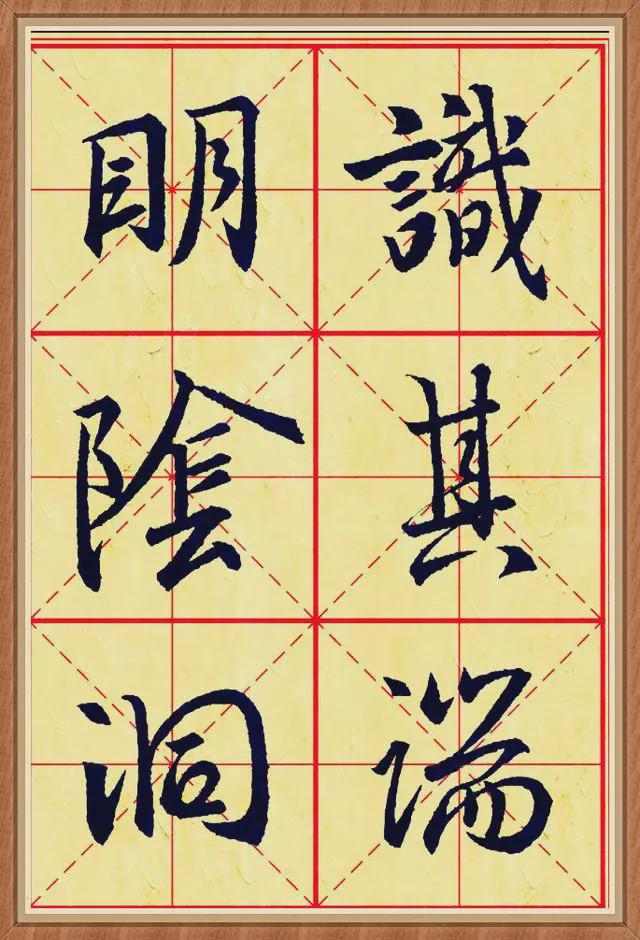 識其端
明陰洞